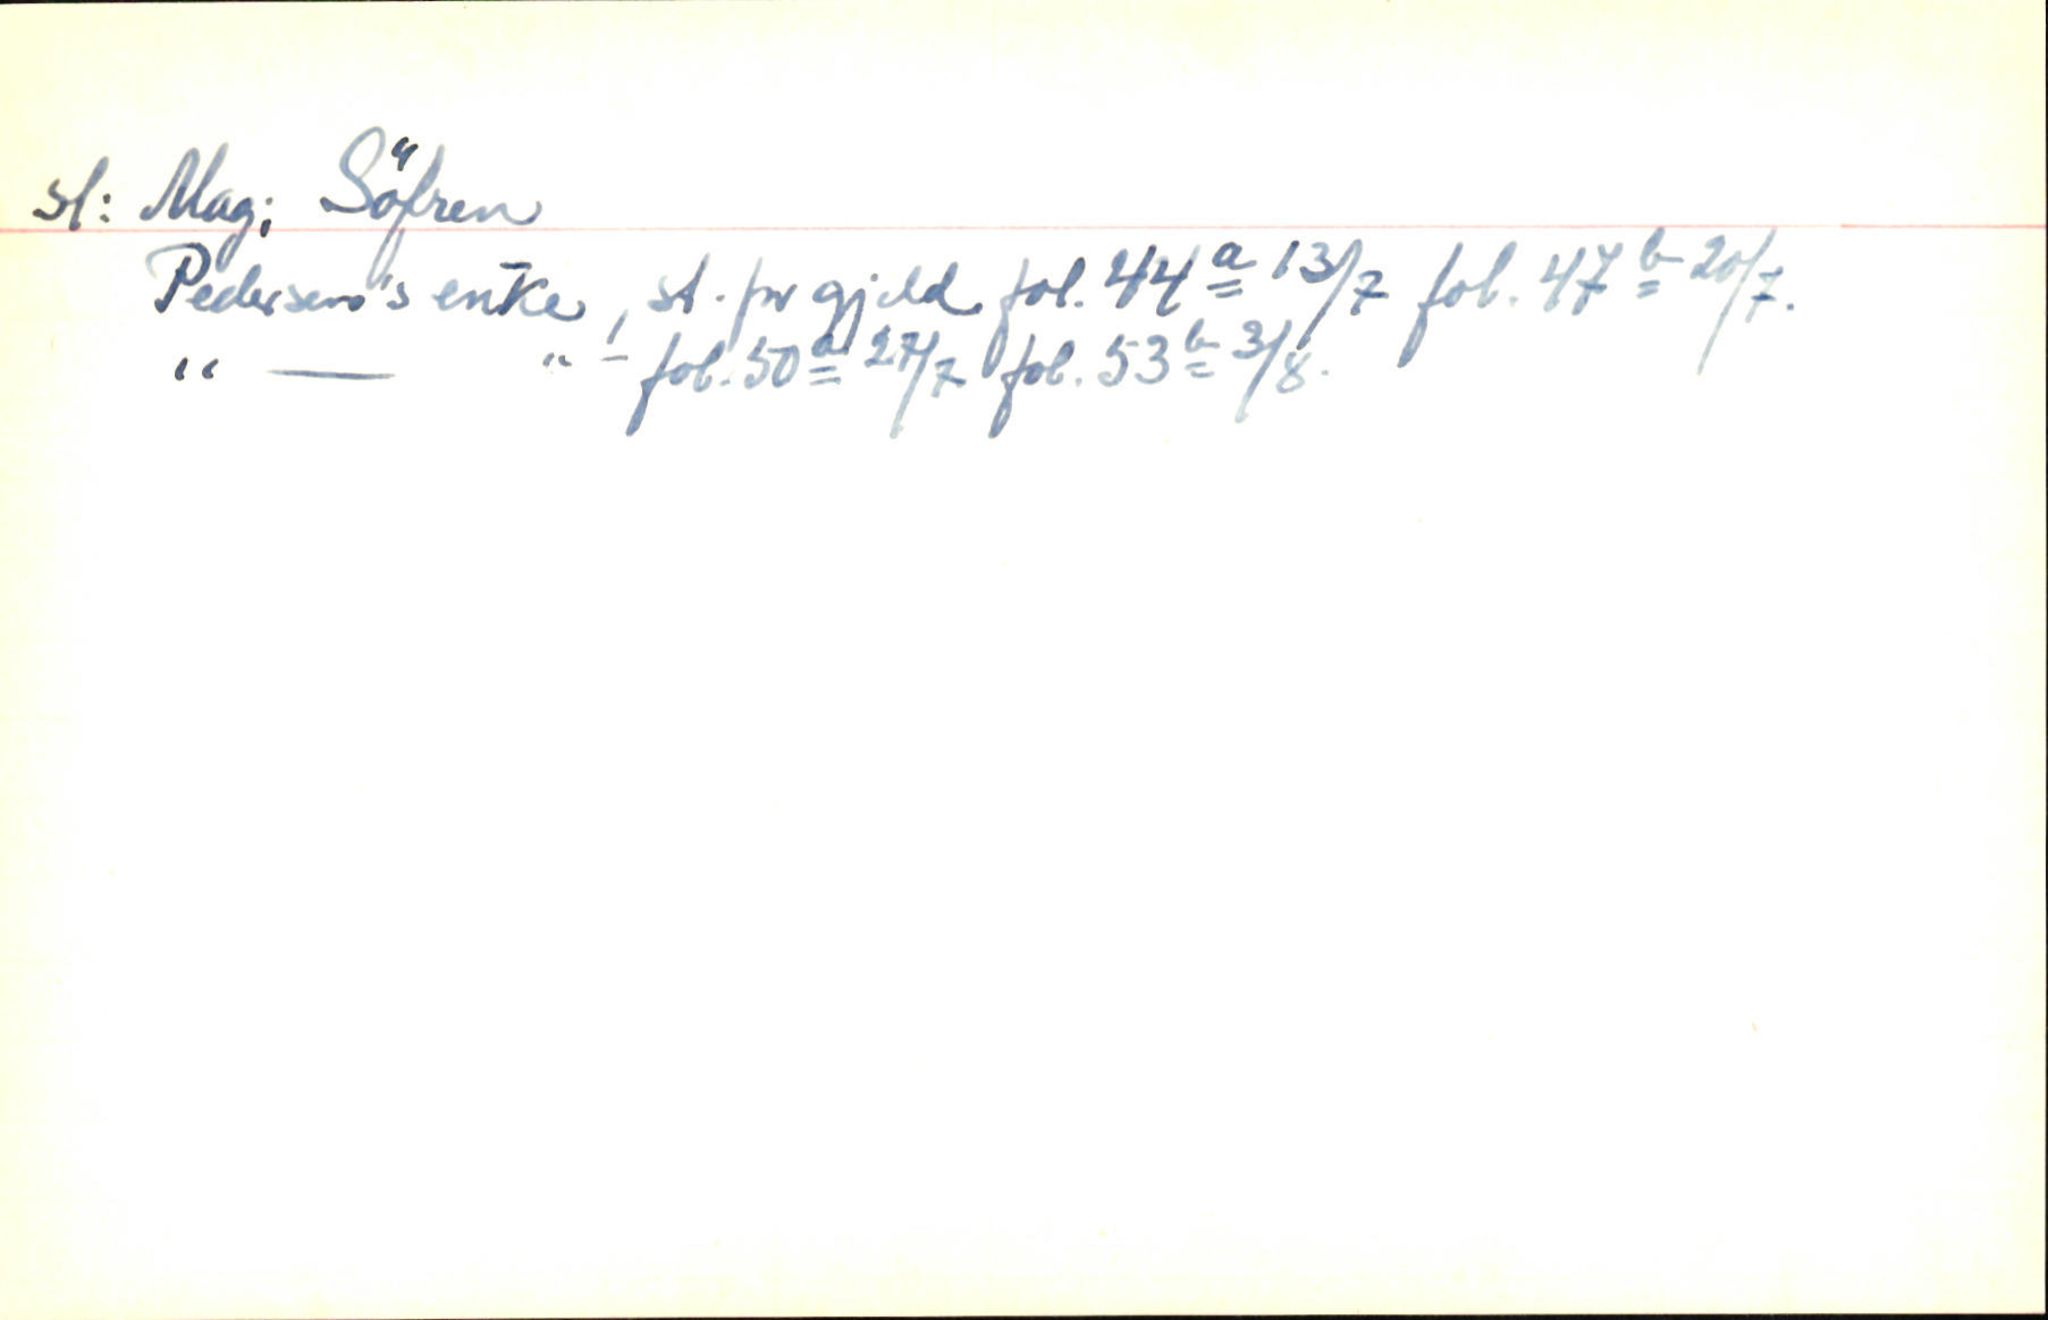 sl: Mag; Söfren
Pedersen's enke, st. for gjeld fol. 44a 13/7 fol. 47b 20/7.
" — " — fol. 50a 27/7 fol. 53b 3/8.